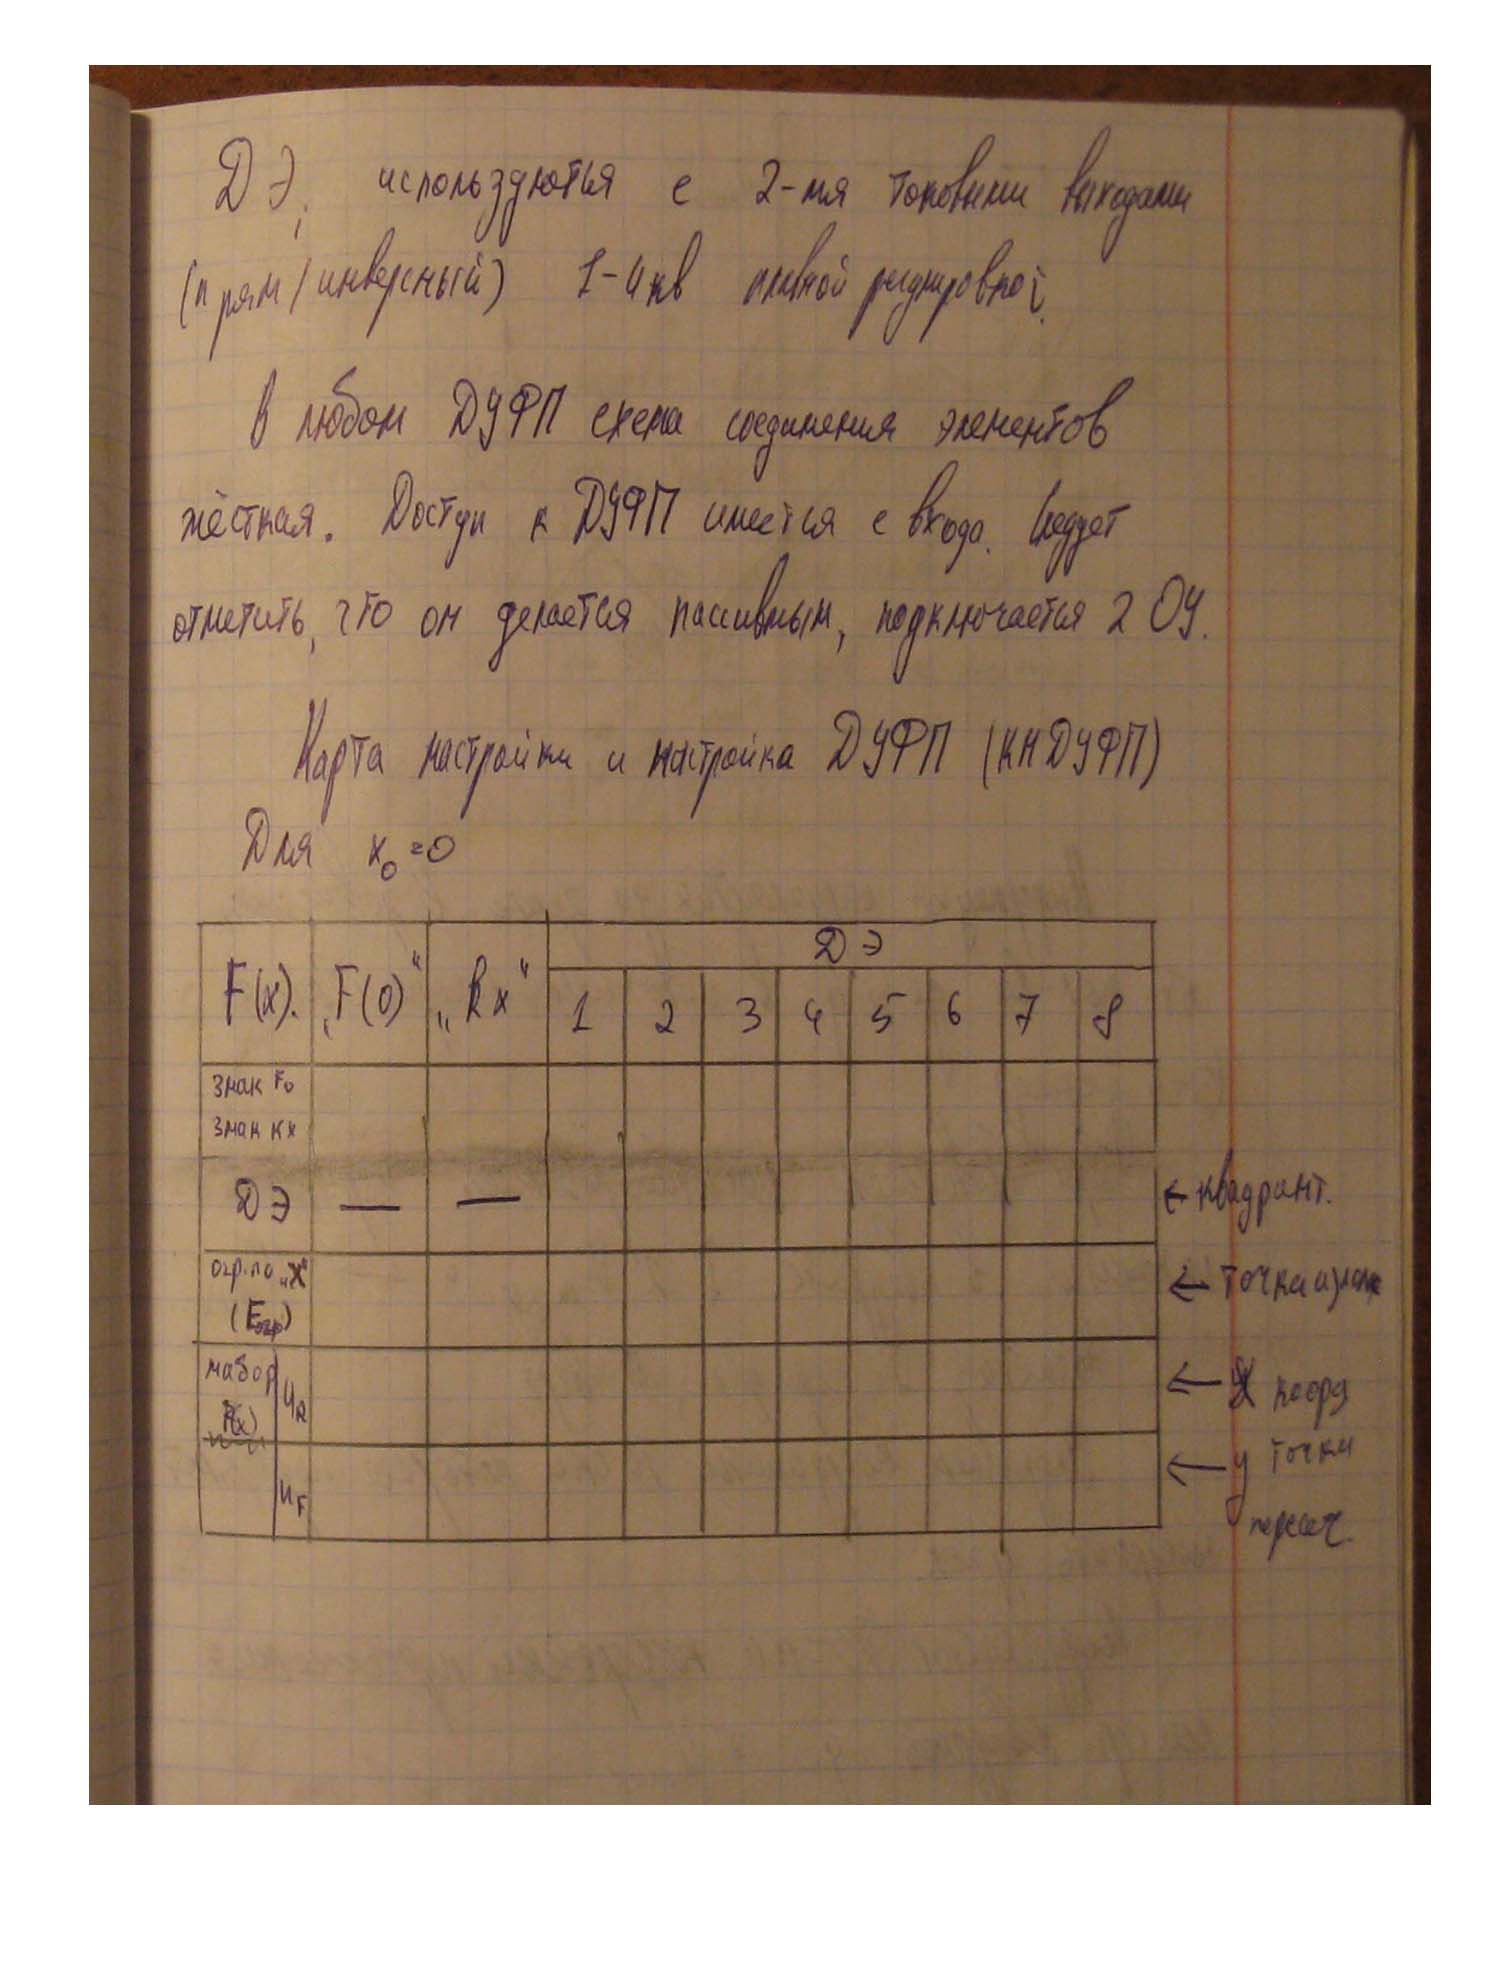 ДЭ, используются с 2-мя токовыми выходами
(прям/инверсный) 1-4 кв плавной регулировкой.
В любом ДУФП схема соединения элементов
жёсткая. Доступ к ДУФП имеется с входа. Следует
отметить, что он делается пассивным, подключается 2 ОУ.
Карта настройки и настройка ДУФП (КНДУФП)
Для x₀=0
F(x). „F(0)“ „Kx“ ДЭ
1 2 3 4 5 6 7 8
знак F₀
знак Kx
ДЭ — — ← квадрант.
огр. по „X“ ← точки излома
(Eогр)
набор F(x) UR ← X коорд
UF ← y точки
пересеч.